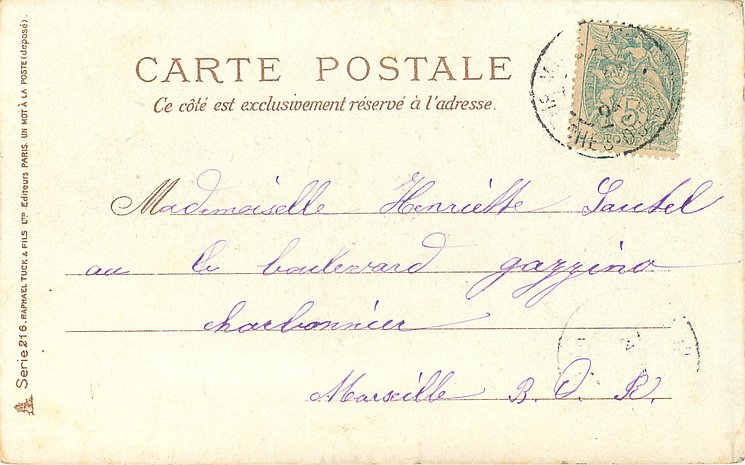 CARTE POSTALE
Ce côté est exclusivement réservé à l'adresse.
Mademoiselle Henriette Sautel
au le boulevard gazzino
charbonnier
Marseille B. D. R.
Serie 216. RAPHAEL TUCK & FILS LTD Editeurs PARIS. UN MOT À LA POSTE (deposé).